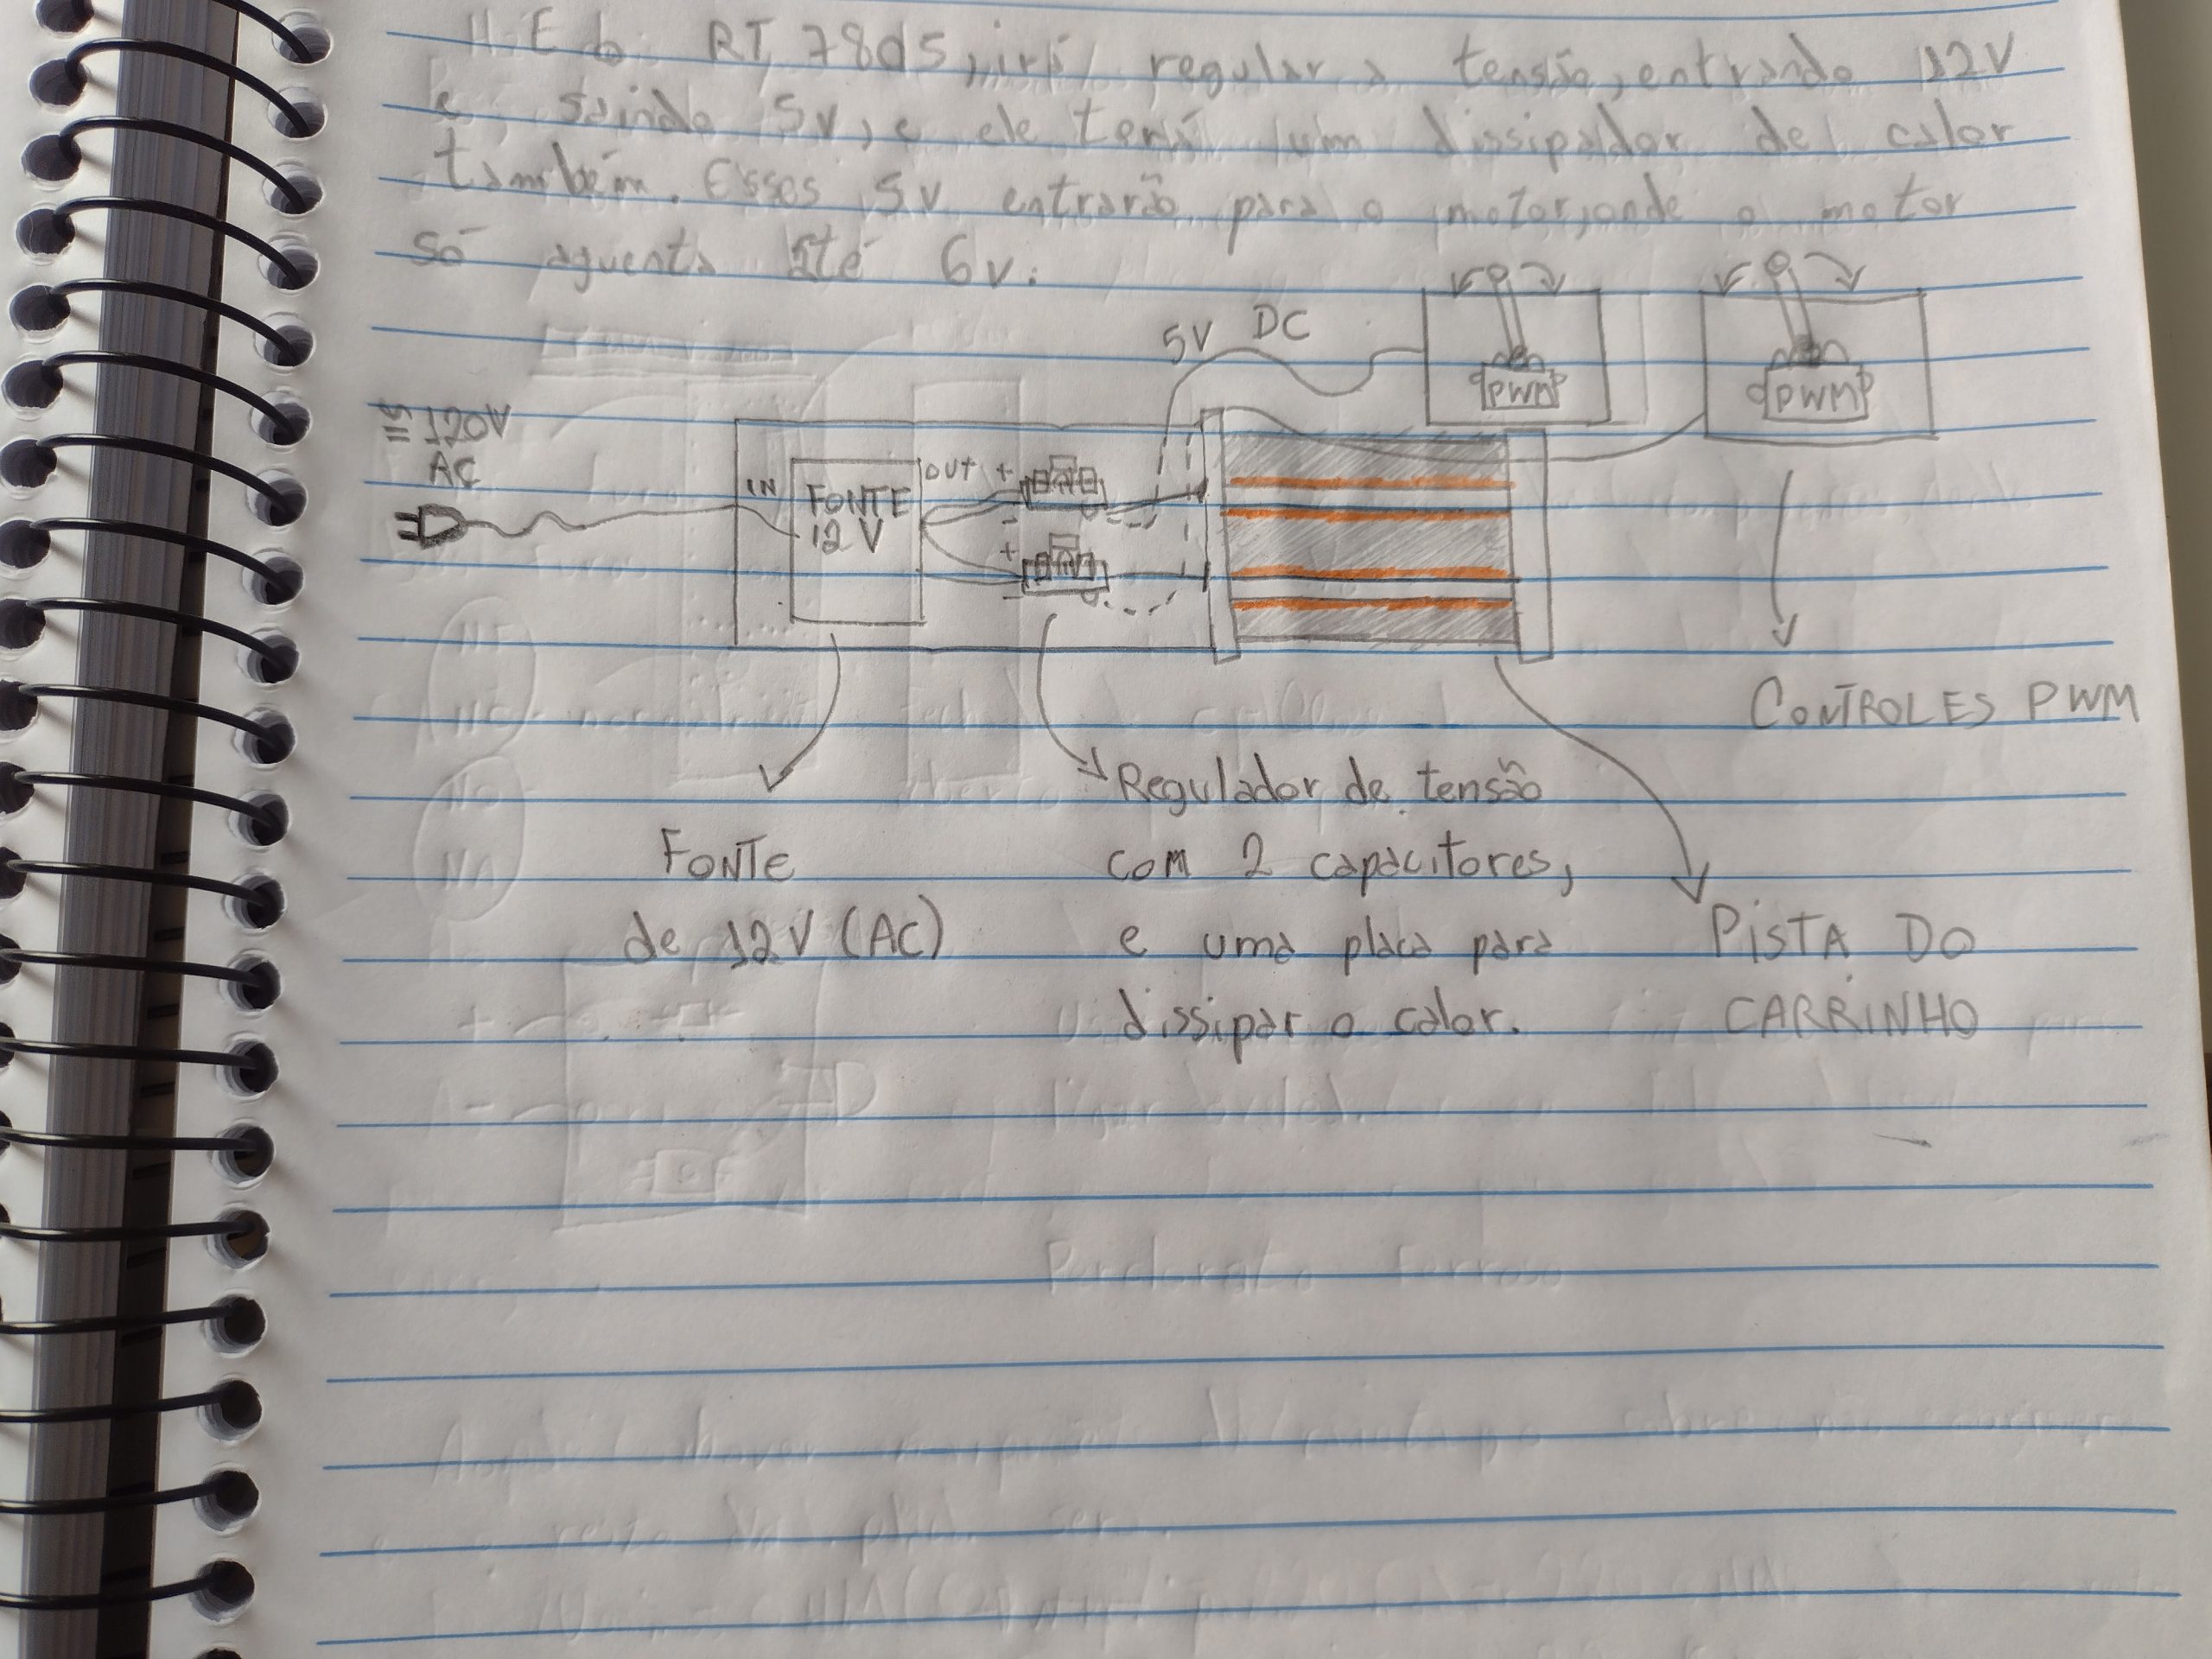 H.E b RT 7805, irá regular a tensão, entrando 12V
e, saindo 5v, e ele terá um dissipador de calor
também. Esses 5v entrarão para o motor, onde o motor
só aguenta até 6v.
5V DC
PWM
PWM
≅ 120V
AC
IN
OUT
+
-
+
-
FONTE
12 V
CONTROLES PWM
Regulador de tensão
com 2 capacitores,
e uma placa para
dissipar o calor.
FONTE
de 12V (AC)
PISTA DO
CARRINHO